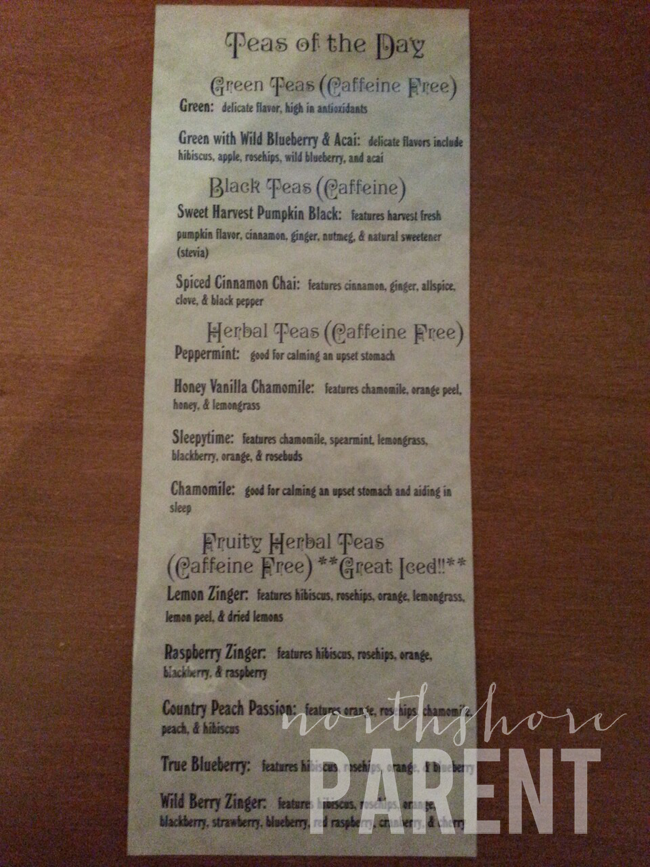 Teas of the Day
Green Teas (Caffeine Free)
Green: delicate flavor, high in antioxidants
Green with Wild Blueberry & Acai: delicate flavors include
hibiscus, apple, rosehips, wild blueberry, and acai
Black Teas (Caffeine)
Sweet Harvest Pumpkin Black: features harvest fresh
pumpkin flavor, cinnamon, ginger, nutmeg, & natural sweetener
(stevia)
Spiced Cinnamon Chai: features cinnamon, ginger, allspice,
clove, & black pepper
Herbal Teas (Caffeine Free)
Peppermint: good for calming an upset stomach
Honey Vanilla Chamomile: features chamomile, orange peel,
honey, & lemongrass
Sleepytime: features chamomile, spearmint, lemongrass,
blackberry, orange, & rosebuds
Chamomile: good for calming an upset stomach and aiding in
sleep
Fruity Herbal Teas
(Caffeine Free) **Great Iced!!**
Lemon Zinger: features hibiscus, rosehips, orange, lemongrass,
lemon peel, & dried lemons
Raspberry Zinger: features hibiscus, rosehips, orange,
blackberry, & raspberry
Country Peach Passion: features orange, rosehips, chamomile,
peach, & hibiscus
True Blueberry: features hibiscus, rosehips, orange, & blueberry
Wild Berry Zinger: features hibiscus, rosehips, orange,
blackberry, strawberry, blueberry, red raspberry, cranberry, & cherry
northshore
PARENT